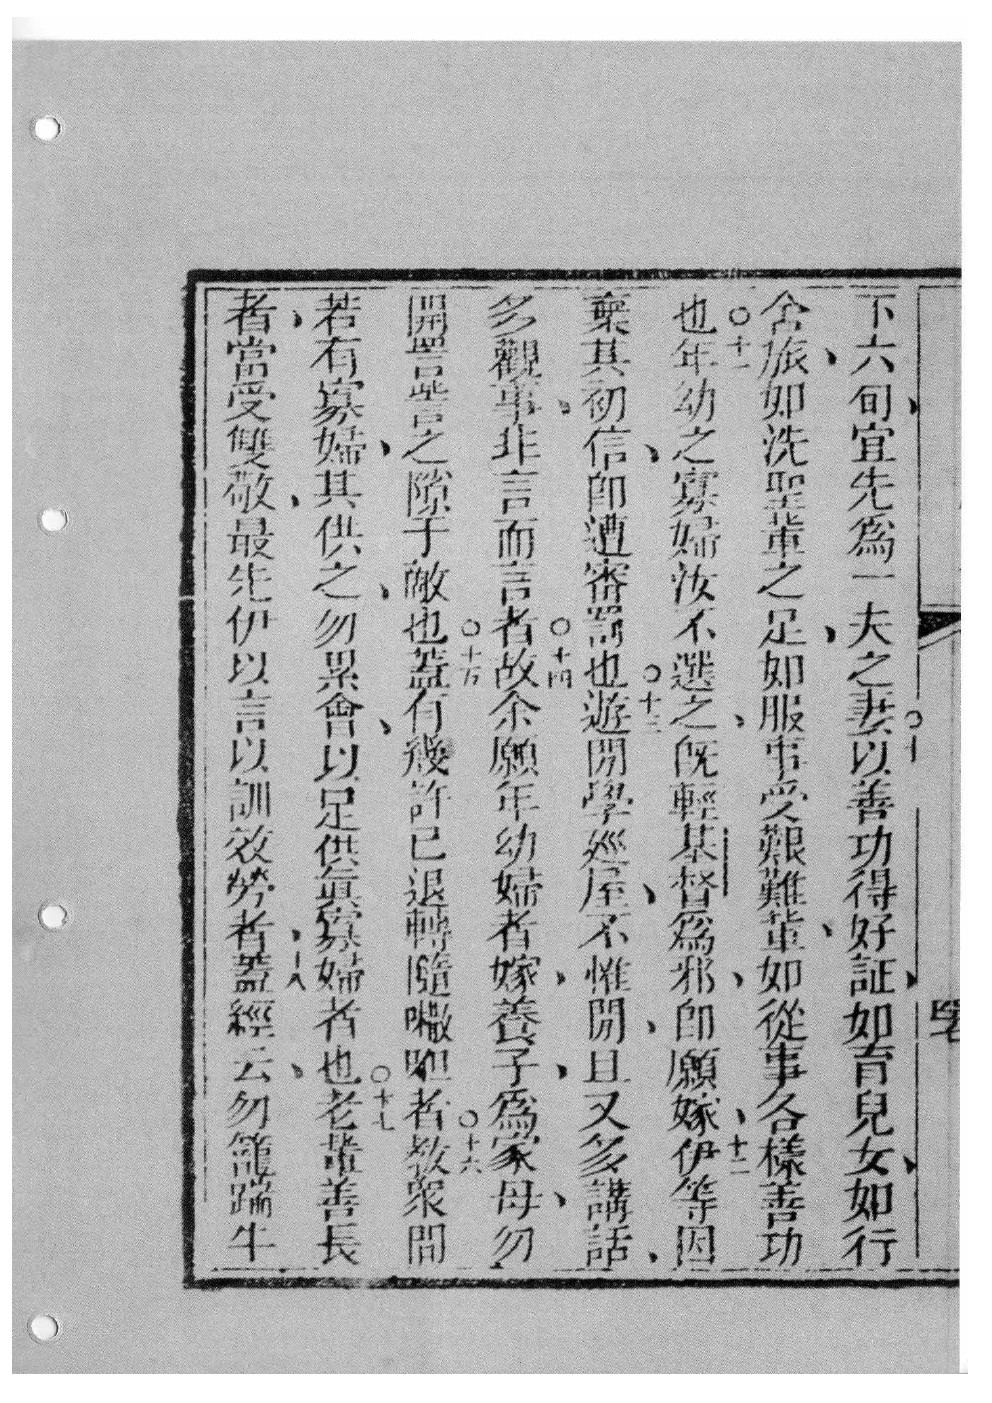 下六旬宜先為一夫之妻○十以善功得好証如育兒女如行
舍旅如洗聖輩之足如服事受艱難輩如從事各樣善功
也○十一年幼之寡婦汝不選之既輕基督為邪即願嫁十二伊等因
棄其初信即遭審罰也○十三遊閒學廵屋不惟閒且又多講話
多觀事非言而言者○十四故余願年幼婦者嫁養子為家母勿
開詈訾之隙于敵也○十五蓋有幾許已退轉隨㘔呾者○十六教衆間
若有寡婦其供之勿累會以足供眞寡婦者也○十七老輩善長
者當受雙敬最先伊以言以訓效勞者十八蓋經云勿籠踹牛